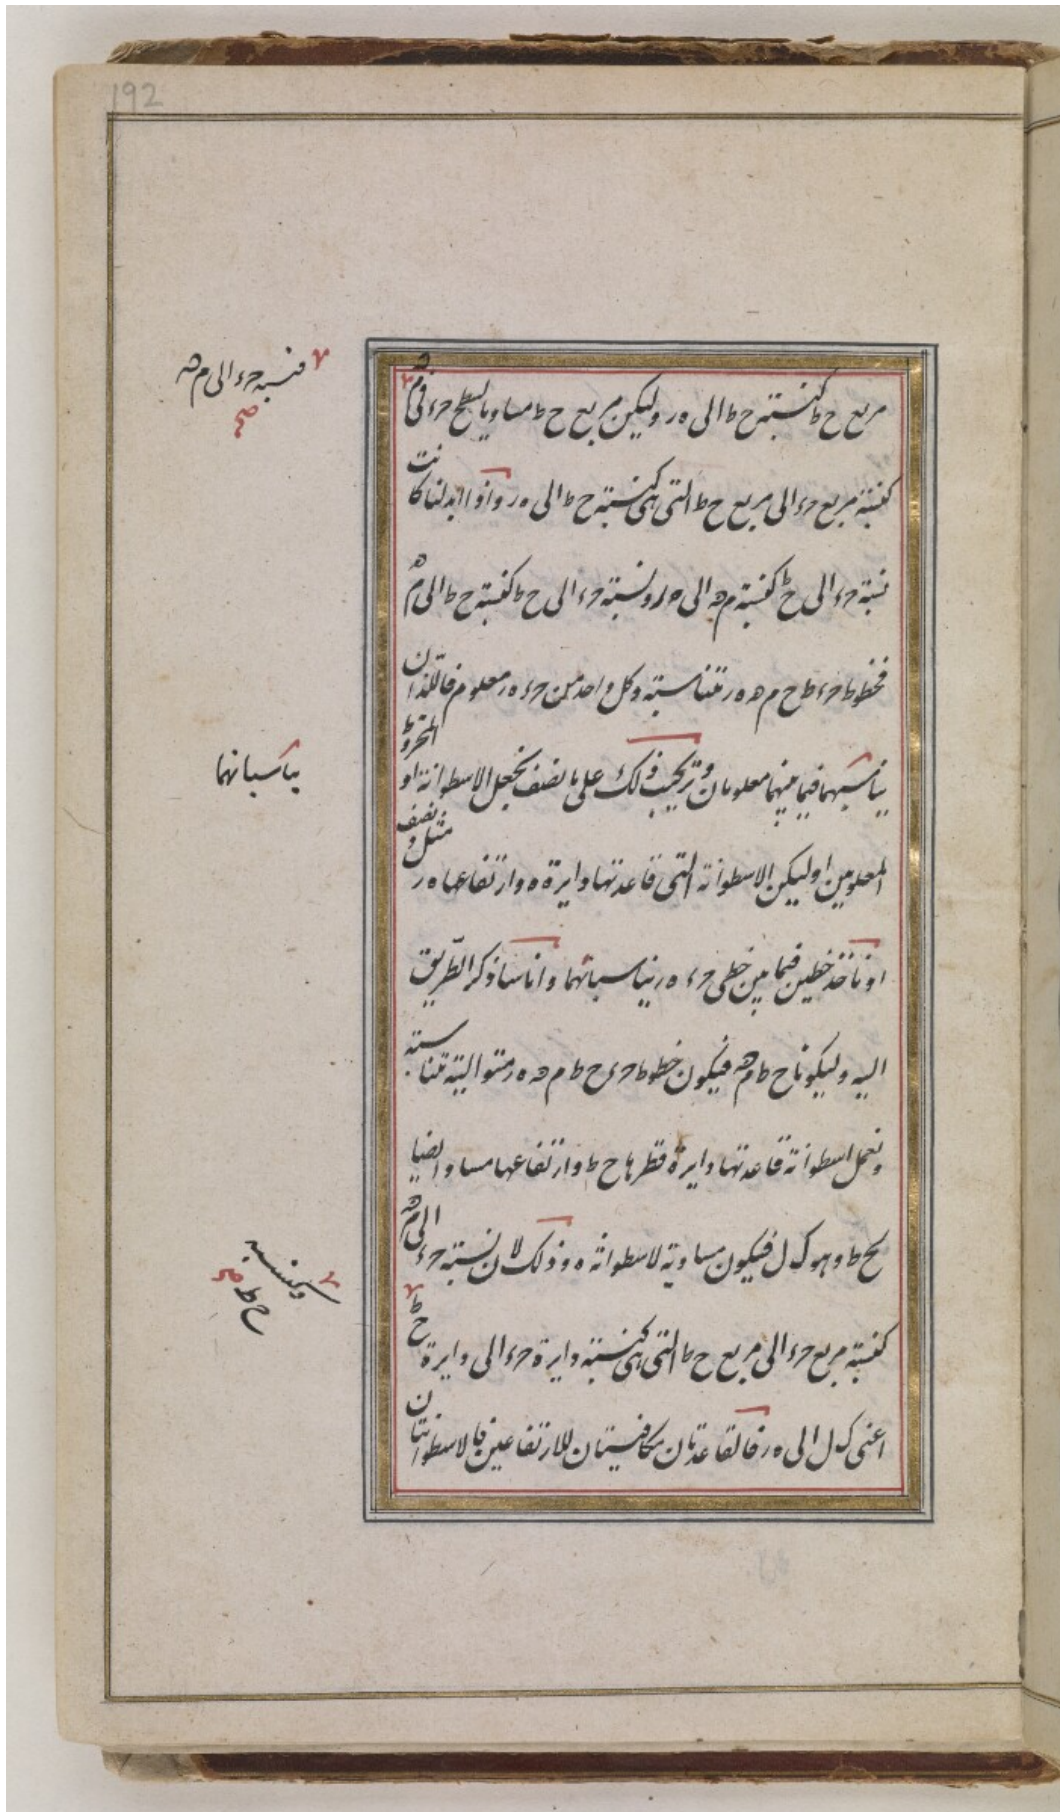 192
مربع ح ط كنسبة ح ط الى ه ر وليكن مربع ح ط مساويا لسطح حء فى م ه
فنسبة حء الى م ه
صح
كنسبة مربع حء الى مربع ح ط التى هى كنسبة ح ط الى ه ر واذا ابدلنا كانت
نسبة حء الى ح ط كنسبة م ه الى ه ر ونسبة حء الى ح ط كنسبة ح ط الى م ه
فخطوط حء ط ح م ه ه ر متناسبة وكل واحد من حء ه ر معلوم فاللذان
يناسبهما فيما بينهما معلومان وتركيب ذلك على ما نصف نجعل الاسطوانة او المخروط
يناسبانهما
المعلومين اوليكن الاسطوانة التى قاعدتها دايرة ه وارتفاعها ه ر مثل ونصف
او ناخذ خطين فيما بين خطى حء ه ر يناسبانهما وانا ساذكر الطريق
اليه وليكونا ح ط م ه فيكون خطوط حء ح ط م ه ه ر متوالية متناسبة
ونعمل اسطوانة قاعدتها دايرة قطرها ح ط وارتفاعها مساو ايضا
لح ط وهو ك ل فيكون مساوية لاسطوانة ه وذلك لان نسبة حء الى م ه
كنسبة مربع حء الى مربع ح ط التى هى كنسبة دايرة حء الى دايرة ح ط
وكنسبة
ح ط صح
اعنى ك ل الى ه ر فالقاعدتان مكافيتان للارتفاعين فالاسطوانتان